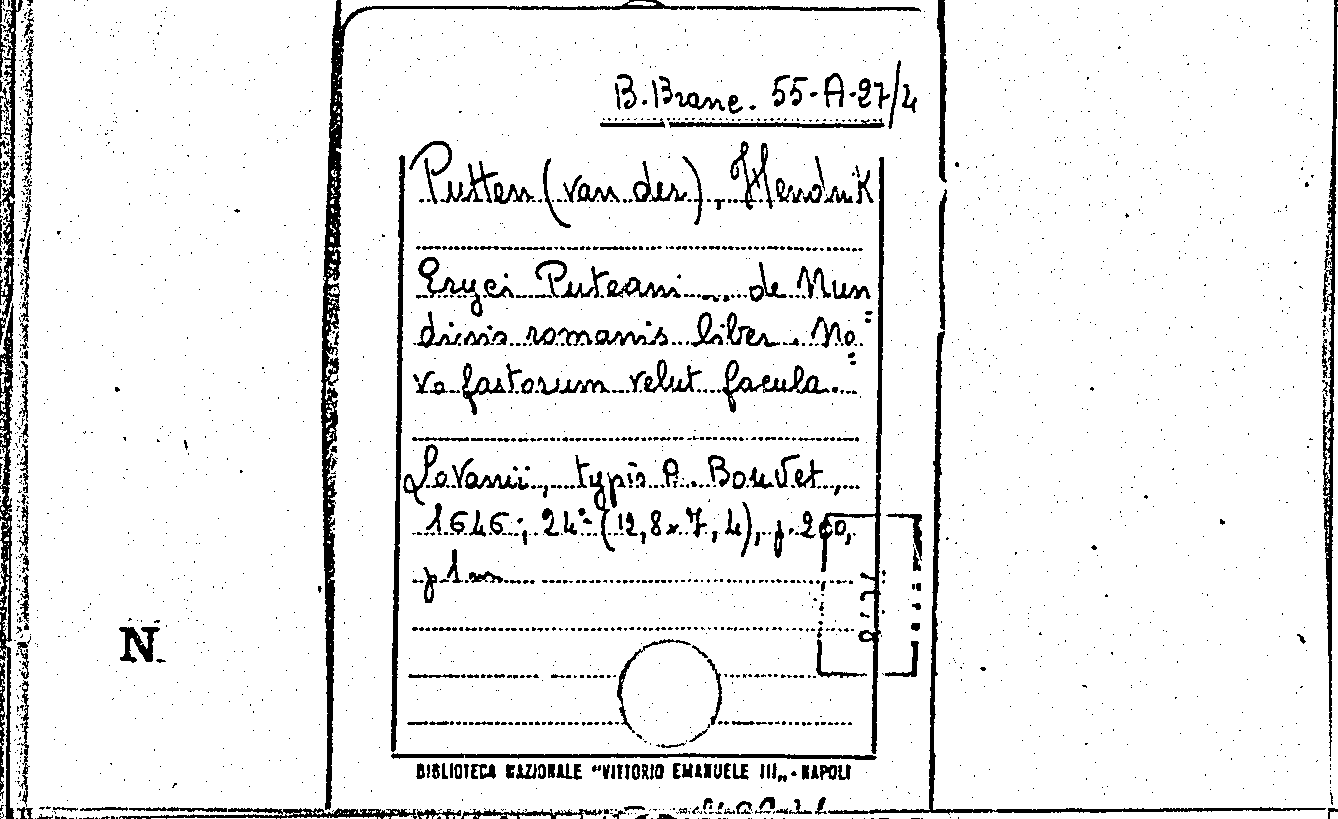 B.Branc. 55-A-27/4
Putten (van der), Hendrik
Eryci Puteani ... de Nun=
dinis romanis liber. No=
va fastorum velut facula.
Lovanii, typis A. Bouvet,
1646; 24° (12,8x7,4), p. 260,
N.
BIBLIOTECA NAZIONALE "VITTORIO EMANUELE III„ - NAPOLI